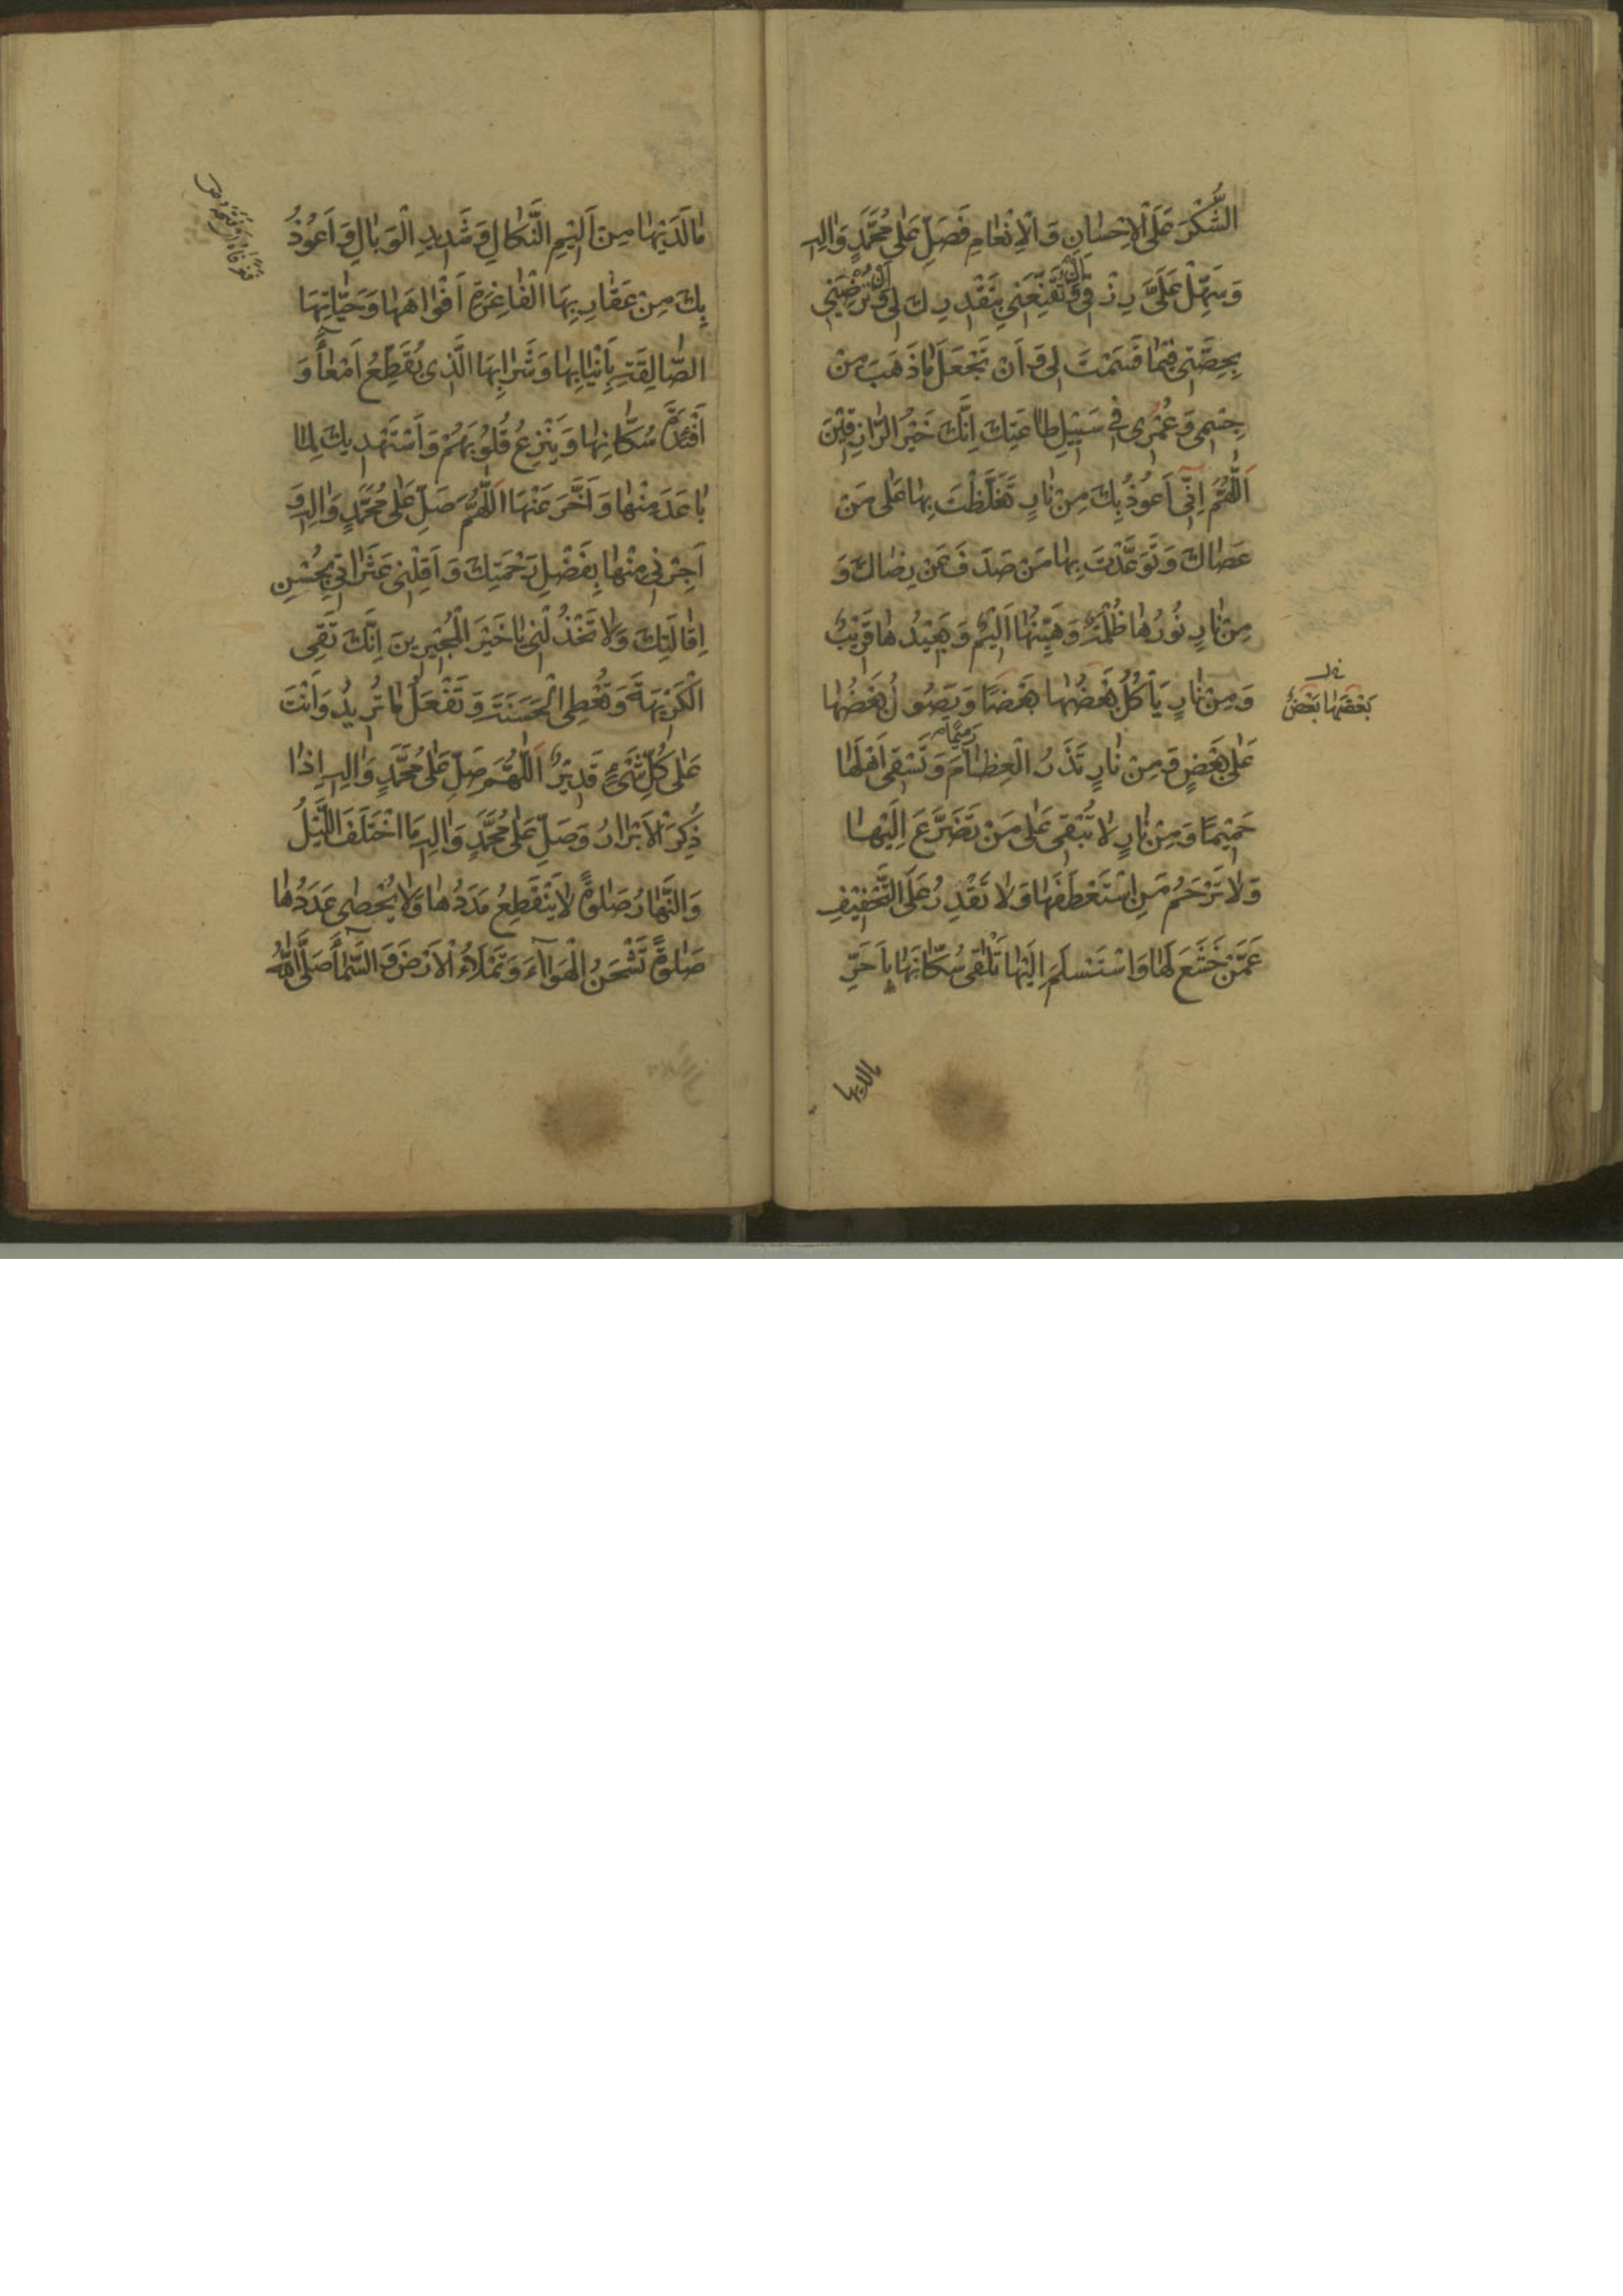 الشُّكْرَ عَلَى الْاِحْسٰانِ وَ الْاِنْعٰامِ فَصَلِّ عَلٰى مُحَمَّدٍ وَاٰلِهِ
وَسَهِّلْ عَلَىَّ رِزْقى وَ اَنْ تُقَنِّعَنى بِتَقْديرِكَ لى وَ اَنْ تُرْضِيَنى
بِحِصَّتى فيمٰا قَسَمْتَ لى وَ اَنْ تَجْعَلَ مٰا ذَهَبَ مِنْ
جِسْمى وَ عُمْرى فى سَبيلِ طٰاعَتِكَ اِنَّكَ خَيْرُ الرّٰازِقينَ
اَللّٰهُمَّ اِنّى اَعُوذُ بِكَ مِنْ نٰارٍ تَغَلَّظْتَ بِهٰا عَلٰى مَنْ
عَصٰاكَ وَ تَوَعَّدْتَ بِهٰا مَنْ صَدَفَ عَنْ رِضٰاكَ وَ
مِنْ نٰارٍ نُورُهٰا ظُلْمَةٌ وَ هَيِّنُهٰا اَليمٌ وَ بَعيدُهٰا قَريبٌ
وَ مِنْ نٰارٍ يَأْكُلُ بَعْضُهٰا بَعْضًا وَ يَصُولُ بَعْضُهٰا
بَعْضَهٰا بَعْضٌ
عَلٰى بَعْضٍ وَ مِنْ نٰارٍ تَذَرُ الْعِظٰامَ رَميمًا وَ تَسْقى اَهْلَهٰا
حَميمًا وَ مِنْ نٰارٍ لٰا تُبْقى عَلٰى مَنْ تَضَرَّعَ اِلَيْهٰا
وَ لٰا تَرْحَمُ مَنِ اسْتَعْطَفَهٰا وَ لٰا تَقْدِرُ عَلَى التَّخْفيفِ
عَمَّنْ خَشَعَ لَهٰا وَ اسْتَسْلَمَ اِلَيْهٰا تَلْقٰى سُكّٰانَهٰا بِاَحَرِّ
مالديها
مٰا لَدَيْهٰا مِنْ اَليمِ النَّكٰالِ وَ شَديدِ الْوَبٰالِ وَ اَعُوذُ
بِكَ مِنْ عَقٰارِبِهَا الْفٰاغِرَةِ اَفْوٰاهَهٰا وَ حَيّٰاتِهَا
الصّٰالِقَةِ بِاَنْيٰابِهٰا وَ شَرٰابِهَا الَّذى يُقَطِّعُ اَمْعٰآءَ وَ
اَفْئِدَةَ سُكّٰانِهٰا وَ يَنْزِعُ قُلُوبَهُمْ وَ اَسْتَهْديكَ لِمٰا
بٰاعَدَ مِنْهٰا وَ اَخَّرَ عَنْهَا اَللّٰهُمَّ صَلِّ عَلٰى مُحَمَّدٍ وَاٰلِهِ وَ
اَجِرْنى مِنْهٰا بِفَضْلِ رَحْمَتِكَ وَ اَقِلْنى عَثَرٰاتى بِحُسْنِ
اِقٰالَتِكَ وَ لٰا تَخْذُلْنى يٰا خَيْرَ الْمُجيرينَ اِنَّكَ تَقِى
الْكَريهَةَ وَ تُعْطِى الْحَسَنَةَ وَ تَفْعَلُ مٰا تُريدُ وَ اَنْتَ
عَلٰى كُلِّ شَىْءٍ قَديرٌ اَللّٰهُمَّ صَلِّ عَلٰى مُحَمَّدٍ وَاٰلِهِ اِذٰا
ذُكِرَ الْاَبْرٰارُ وَ صَلِّ عَلٰى مُحَمَّدٍ وَاٰلِهِ مَا اخْتَلَفَ اللَّيْلُ
وَ النَّهٰارُ صَلٰوةً لٰا يَنْقَطِعُ مَدَدُهٰا وَ لٰا يُحْصٰى عَدَدُهٰا
صَلٰوةً تَشْحَنُ الْهَوٰآءَ وَ تَمْلَأُ الْاَرْضَ وَ السَّمٰآءَ صَلَّى اللّٰهُ